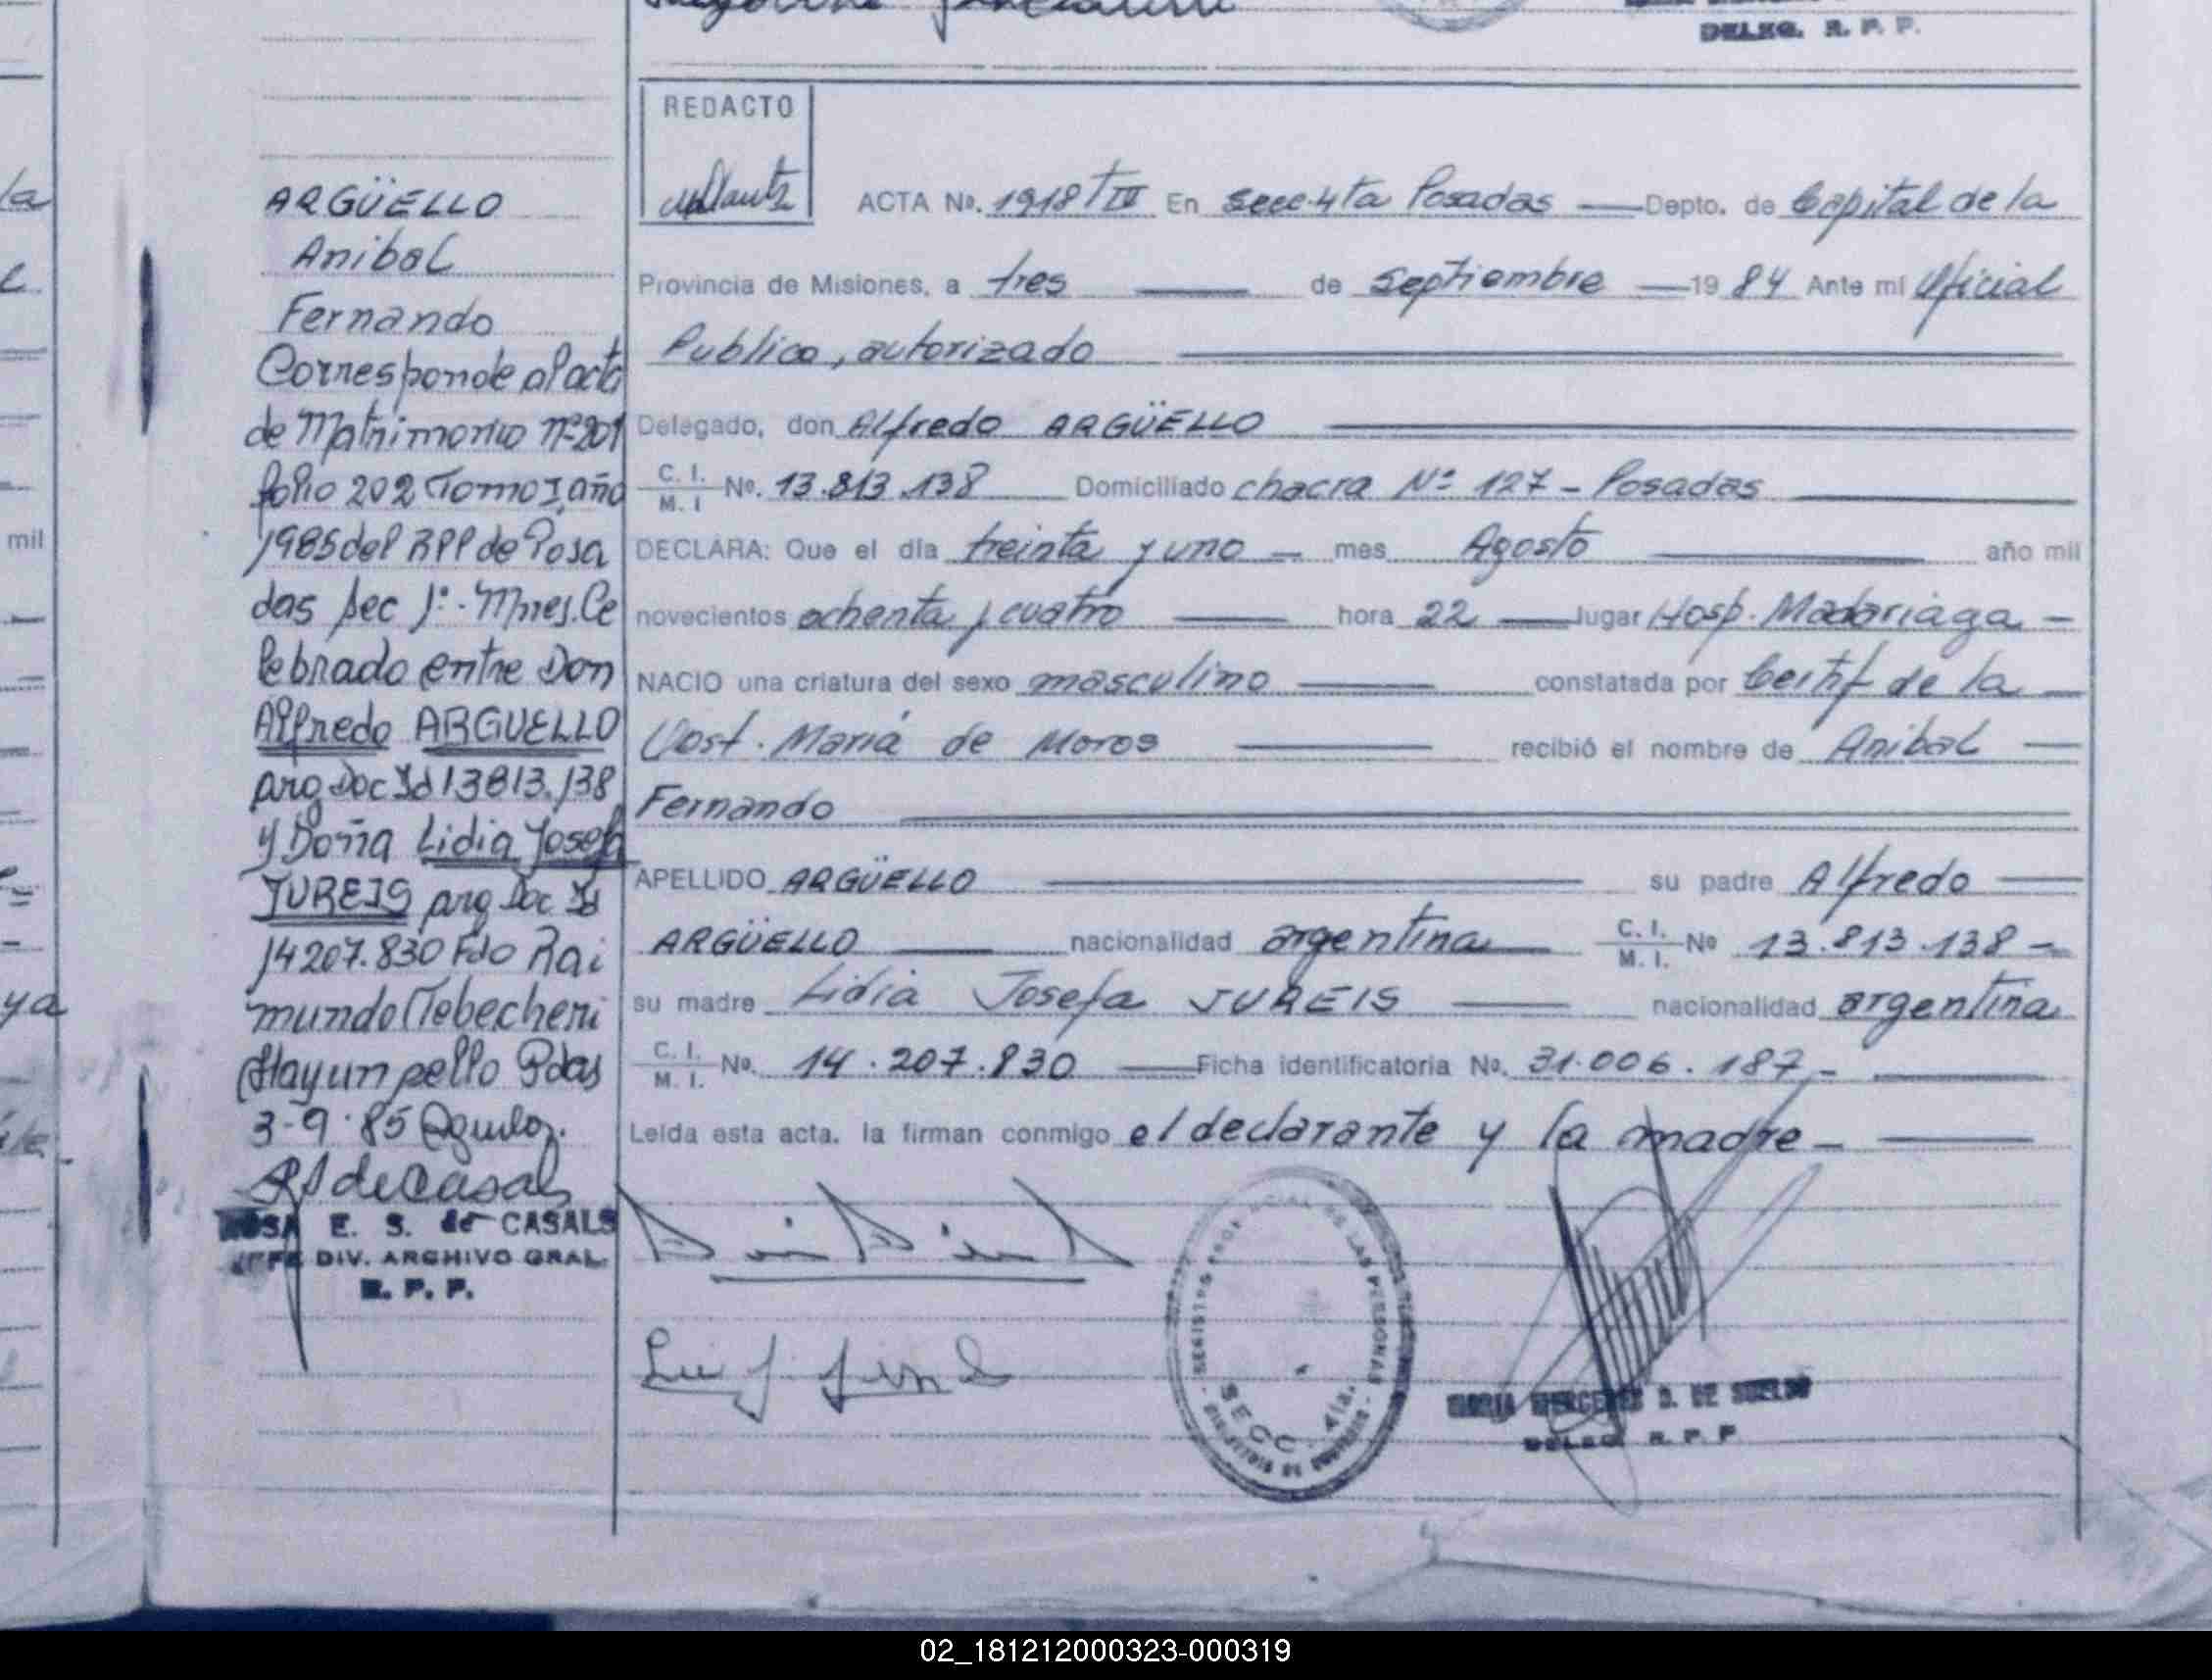 DELEG. R. P. P.
REDACTO
ARGÜELLO
Anibal
Fernando
Corresponde al acta
de Matrimonio nº 201
folio 202 Tomo I, año
1985 del RPP de Posa
das sec 1º. Mnes. Ce
lebrado entre Don
Alfredo ARGUELLO
arg Doc Id 13813.138
y Doña Lidia Josefa
JUREIS arg Doc Id
14207.830 Fdo Rai
mundo
Hay un sello Pdas
3-9-85
ROSA E. S. de CASALS
JEFE DIV. ARCHIVO GRAL.
R. P. P.
ACTA No. 1918 T IV En Secc. 4ta Posadas — Depto. de Capital de la
Provincia de Misiones, a tres — de Septiembre — 19 84 Ante mi Oficial
Publico, autorizado
Delegado, don Alfredo ARGÜELLO
C. I. M. I No. 13.813.138 Domiciliado chacra Nº 127 - Posadas
DECLARA: Que el día treinta y uno — mes Agosto — año mil
novecientos ochenta y cuatro — hora 22 — lugar Hosp. Madariaga —
NACIO una criatura del sexo masculino — constatada por Certif de la
Obst. Maria de Moros — recibió el nombre de Anibal —
Fernando
APELLIDO ARGÜELLO — su padre Alfredo —
ARGÜELLO — nacionalidad argentina — C. I. M. I. No 13.813.138 —
su madre Lidia Josefa JUREIS — nacionalidad argentina
C. I. M. I. No. 14.207.830 — Ficha identificatoria No. 31.006.187 -
Leída esta acta, la firman conmigo el declarante y la madre —
REGISTRO PROVINCIAL DE LAS PERSONAS
SECC. 4ta.
MARIA MERCEDES D. DE
DELEG. R. P. P.
mil
la
ya
02_181212000323-000319